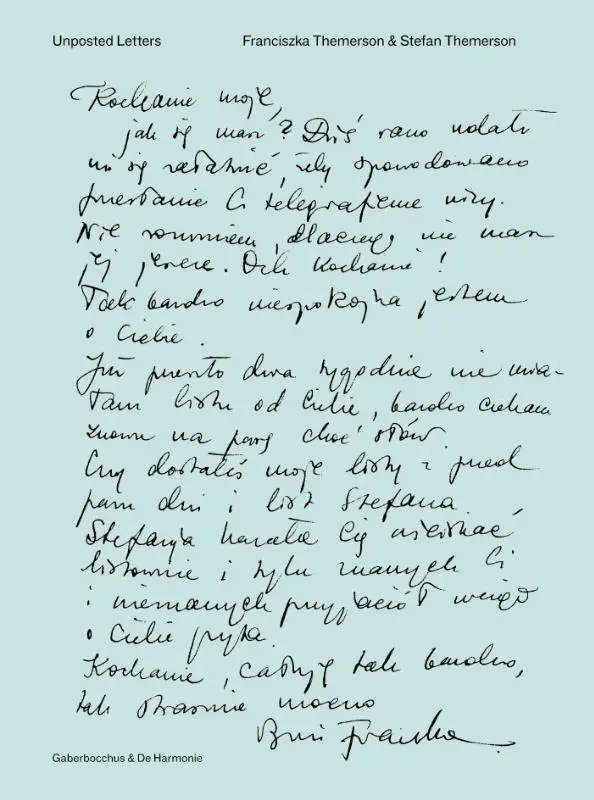 Unposted Letters
Franciszka Themerson & Stefan Themerson
Kochanie moje,
jak się masz? Dziś rano udało
mi się załatwić, żeby spowodowano
przesłanie Ci telegraficzne wizy.
Nie rozumiem, dlaczego nie masz
jej jeszcze. Och Kochanie!
Tak bardzo niespokojna jestem
o Ciebie.
Już przeszło dwa tygodnie nie mia-
łam listu od Ciebie, bardzo czekam
znowu na parę choć słów.
Czy dostałeś moje listy z przed
paru dni i list Stefana.
Stefania kazała Cię uściskać
listownie i tylu znanych Ci
i nieznanych przyjaciół wciąż
o Ciebie pyta.
Kochanie, całuję tak bardzo,
tak strasznie mocno
Franka
Gaberbocchus & De Harmonie